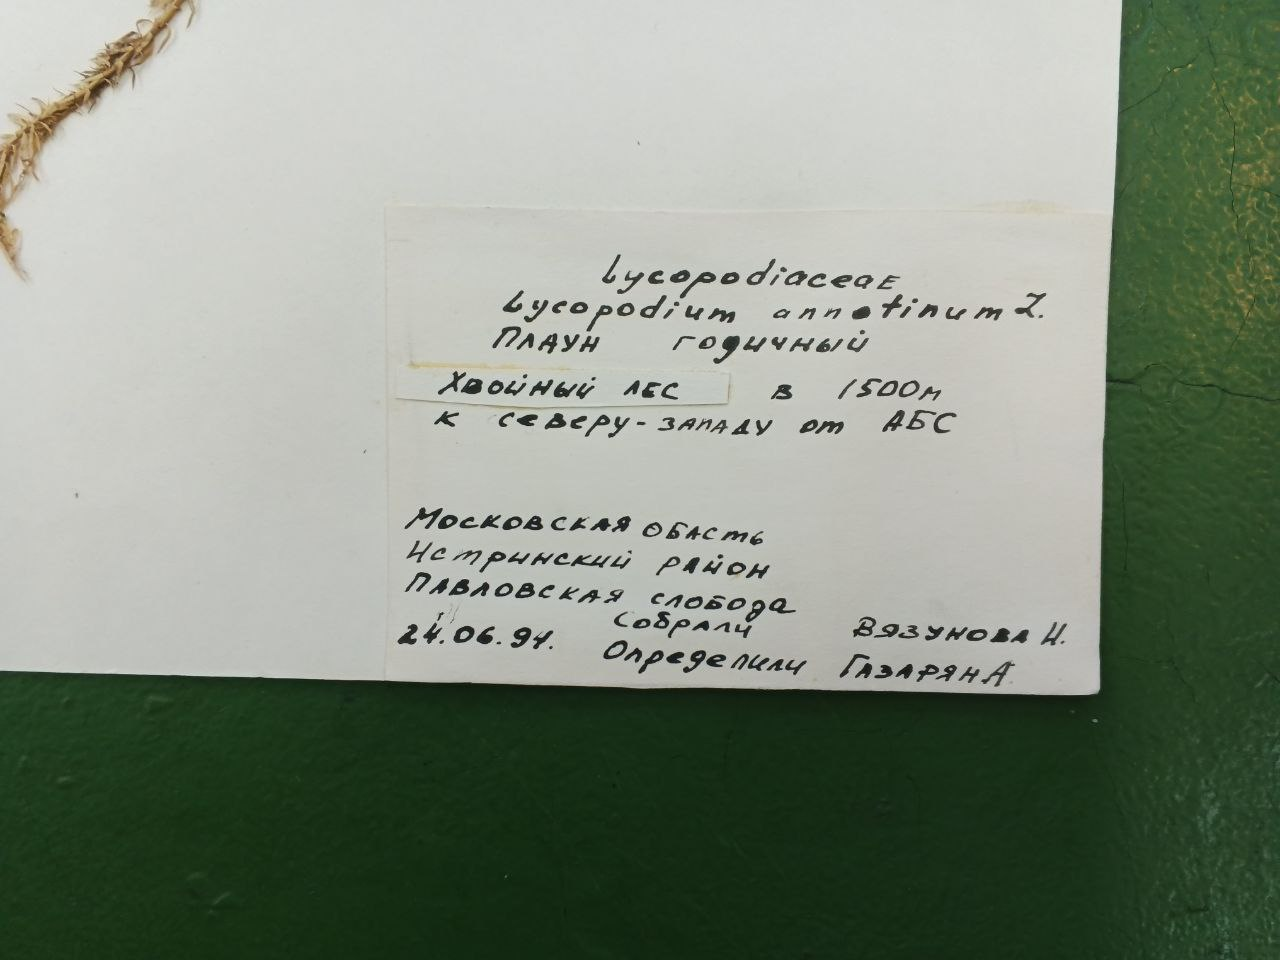 Lycopodiaceae
Lycopodium annotinum L.
Плаун годичный
Хвойный лес в 1500м
к северу-западу от АБС
Московская обасть
Истринский район
Павловская слобода
Собрали Вязунова И.
24.06.94. Определили Газарян А.